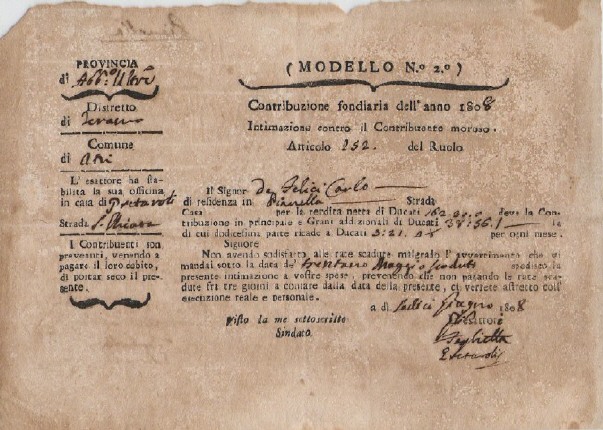 PROVINCIA
di
Distretto
di Teramo
Comune
di Atri
L' esattore ha sta-
bilita la sua officina
in casa di
Strada S. Chiara
I Contribuenti son
prevenuti, venendo a
pagare il loro debito,
di portar seco il pre-
sente.
( MODELLO N.º 2.º )
Contribuzione fondiaria dell' anno 1808
Intimazione contro il Contribuente moroso.
Articolo 252. del Ruolo
Il Signor de Felici Carlo
di residenza in Pianella Strada
Casa per la rendita netta di Ducati deve la Con-
tribuzione in principale e Grani addizionali di Ducati 38:56.1 la
di cui dodicesima parte ricade a Ducati 3:21. per ogni mese.
Signore
Non avendo sodisfatto alle rate scadute malgrado l' avvertimento che vi
mandai sotto la data de' trentuno Maggio scaduto spedisco la
presente intimazione a vostre spese, prevenendo che non pagando le rate sca-
dute fri tre giorni a contare dalla data della presente, ci verrete astretto coll'
esecuzione reale e personale.
a di sedici Giugno 1808
Visto da me sottoscritto
Sindaco.
L'Esattore